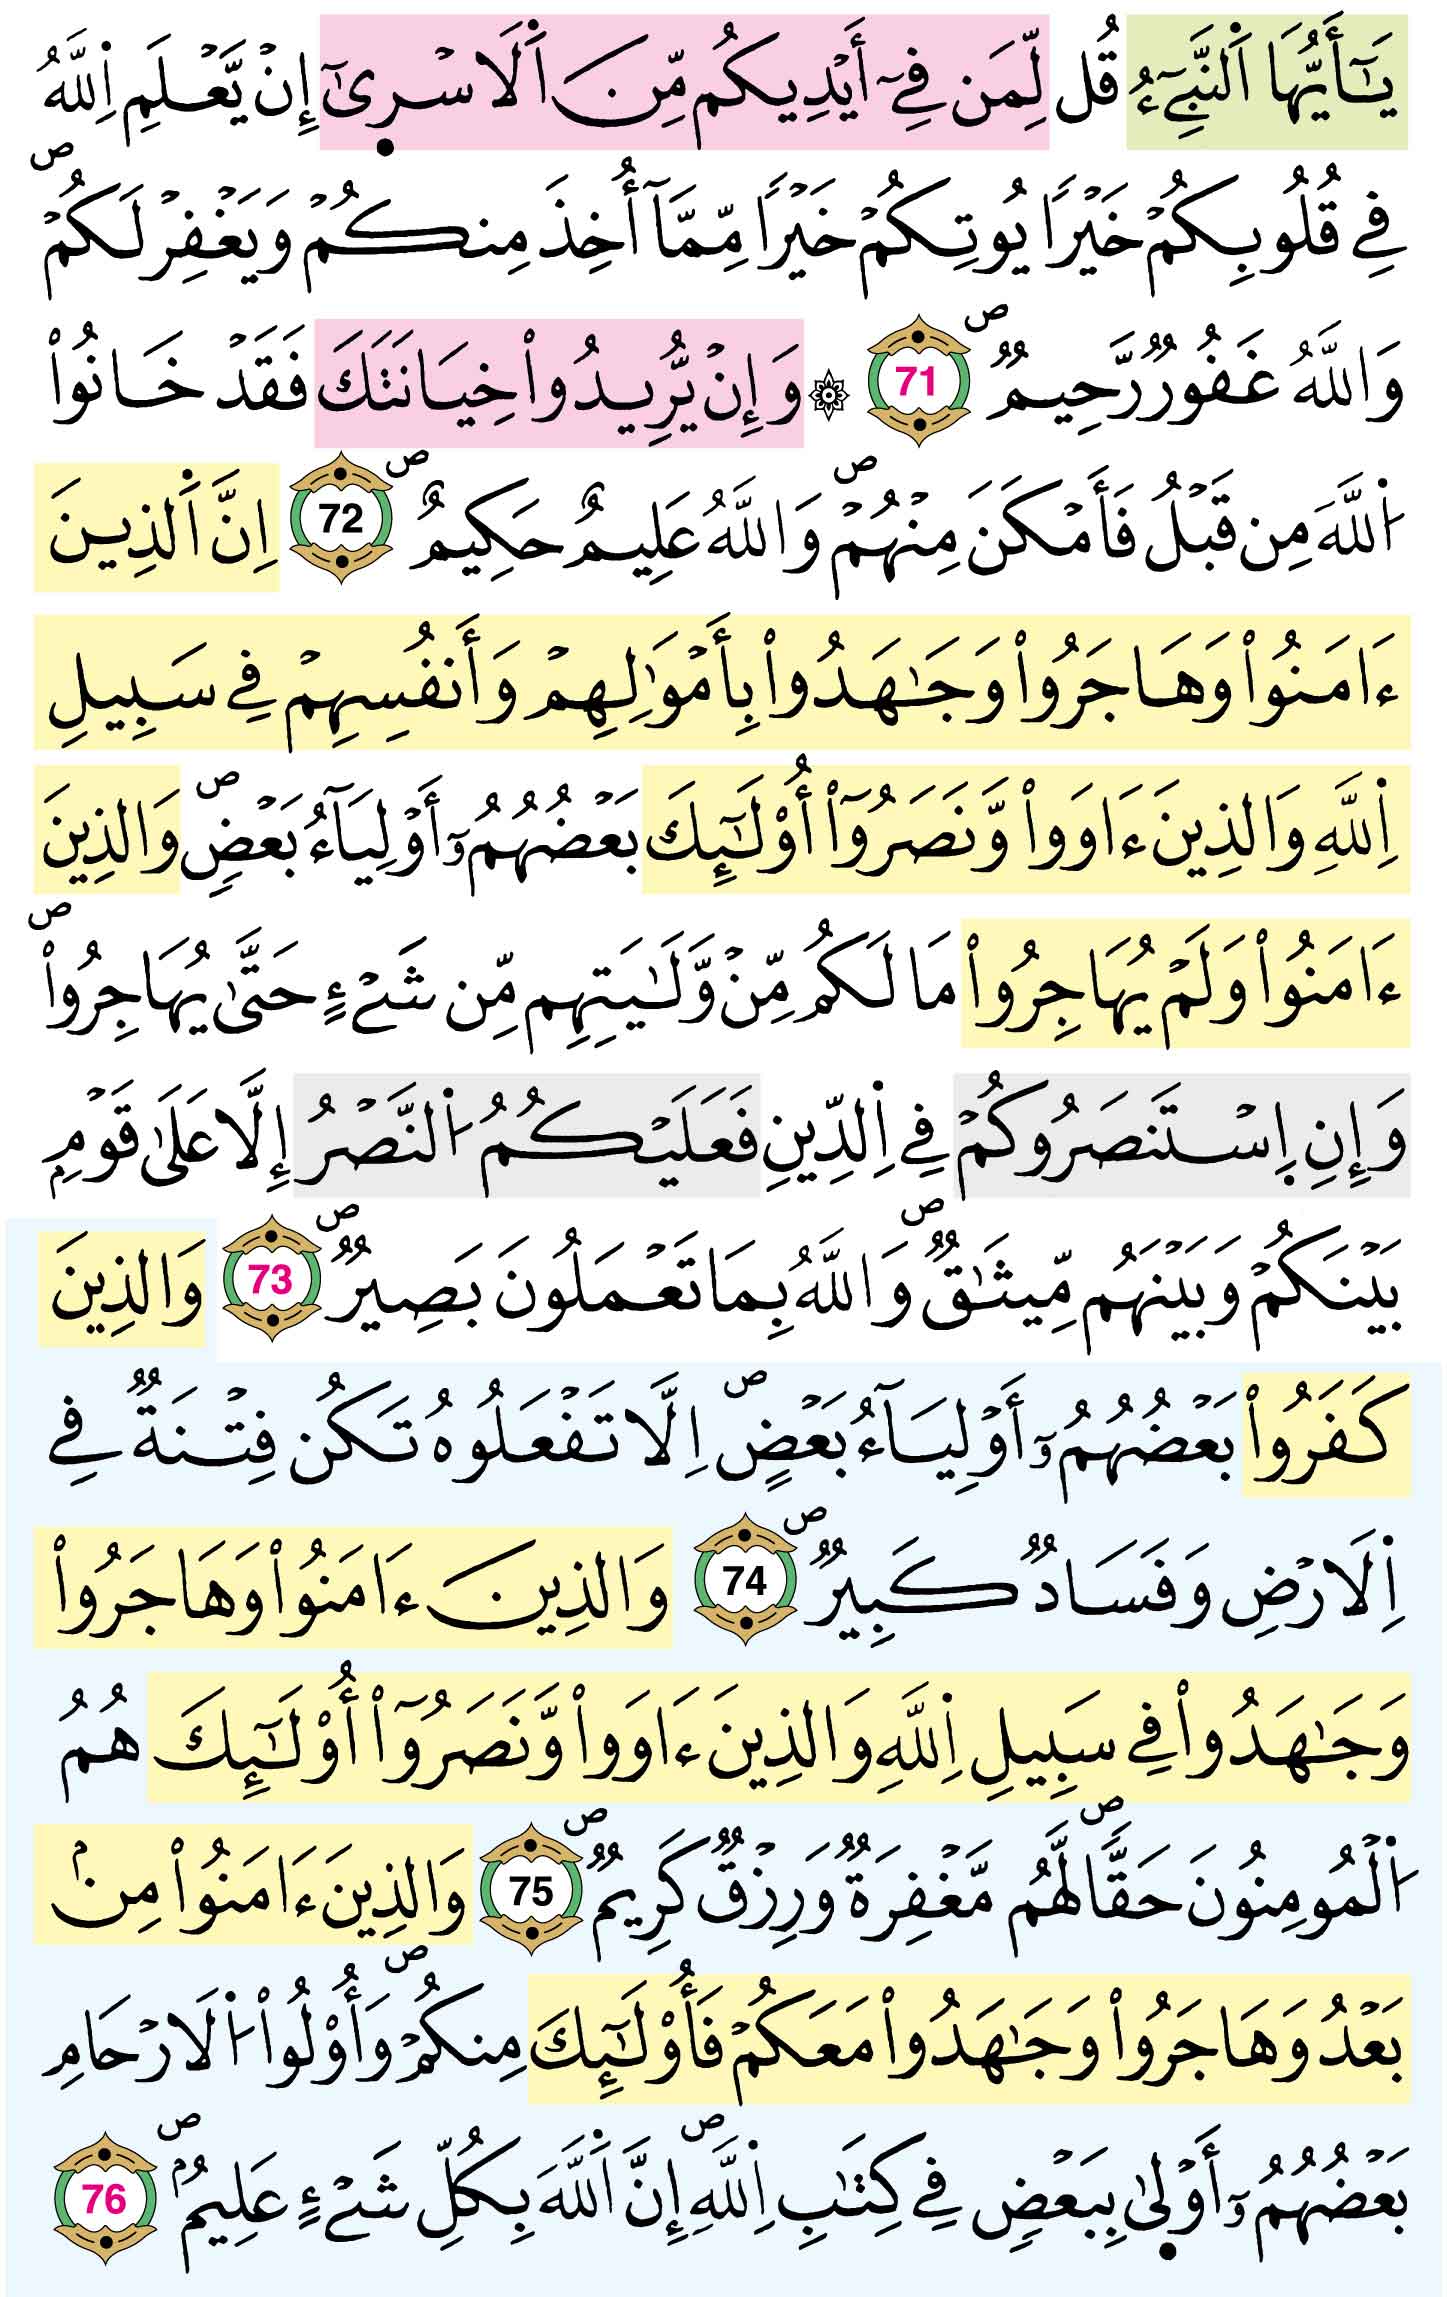 يَٰٓأَيُّهَا اَ۬لنَّبِيٓءُ قُل لِّمَن فِےٓ أَيْدِيكُم مِّنَ اَ۬لَاسْر۪يٰٓ إِنْ يَّعْلَمِ اِ۬للَّهُ
فِے قُلُوبِكُمْ خَيْراٗ يُوتِكُمْ خَيْراٗ مِّمَّآ أُخِذَ مِنكُمْ وَيَغْفِرْ لَكُمْۖ
وَاللَّهُ غَفُورٞ رَّحِيمٞۖ 71 ۞ وَإِنْ يُّرِيدُواْ خِيَانَتَكَ فَقَدْ خَانُواْ
اُ۬للَّهَ مِن قَبْلُ فَأَمْكَنَ مِنْهُمْۖ وَاللَّهُ عَلِيمٌ حَكِيمٌۖ 72 اِنَّ اَ۬لذِينَ
ءَامَنُواْ وَهَاجَرُواْ وَجَٰهَدُواْ بِأَمْوَٰلِهِمْ وَأَنفُسِهِمْ فِے سَبِيلِ
اِ۬للَّهِ وَالذِينَ ءَاوَواْ وَّنَصَرُوٓاْ أُوْلَٰٓئِكَ بَعْضُهُمُۥٓ أَوْلِيَآءُ بَعْضٖۖ وَالذِينَ
ءَامَنُواْ وَلَمْ يُهَاجِرُواْ مَا لَكُم مِّنْ وَّلَٰيَتِهِم مِّن شَےْءٍ حَتَّىٰ يُهَاجِرُواْۖ
وَإِنِ اِ۪سْتَنصَرُوكُمْ فِے اِ۬لدِّينِ فَعَلَيْكُمُ اُ۬لنَّصْرُ إِلَّا عَلَىٰ قَوْمِۢ
بَيْنَكُمْ وَبَيْنَهُم مِّيثَٰقٞۖ وَاللَّهُ بِمَا تَعْمَلُونَ بَصِيرٞۖ 73 وَالذِينَ
كَفَرُواْ بَعْضُهُمُۥٓ أَوْلِيَآءُ بَعْضٍۖ اِلَّا تَفْعَلُوهُ تَكُن فِتْنَةٞ فِے
اِ۬لَارْضِ وَفَسَادٞ كَبِيرٞۖ 74 وَالذِينَ ءَامَنُواْ وَهَاجَرُواْ
وَجَٰهَدُواْ فِے سَبِيلِ اِ۬للَّهِ وَالذِينَ ءَاوَواْ وَّنَصَرُوٓاْ أُوْلَٰٓئِكَ هُمُ
اُ۬لْمُومِنُونَ حَقّاٗۖ لَّهُم مَّغْفِرَةٞ وَرِزْقٞ كَرِيمٞۖ 75 وَالذِينَ ءَامَنُواْ مِنۢ
بَعْدُ وَهَاجَرُواْ وَجَٰهَدُواْ مَعَكُمْ فَأُوْلَٰٓئِكَ مِنكُمْۖ وَأُوْلُواْ اُ۬لَارْحَامِ
بَعْضُهُمُۥٓ أَوْل۪يٰ بِبَعْضٖ فِے كِتَٰبِ اِ۬للَّهِۖ إِنَّ اَ۬للَّهَ بِكُلِّ شَےْءٍ عَلِيمُۢۖ 76